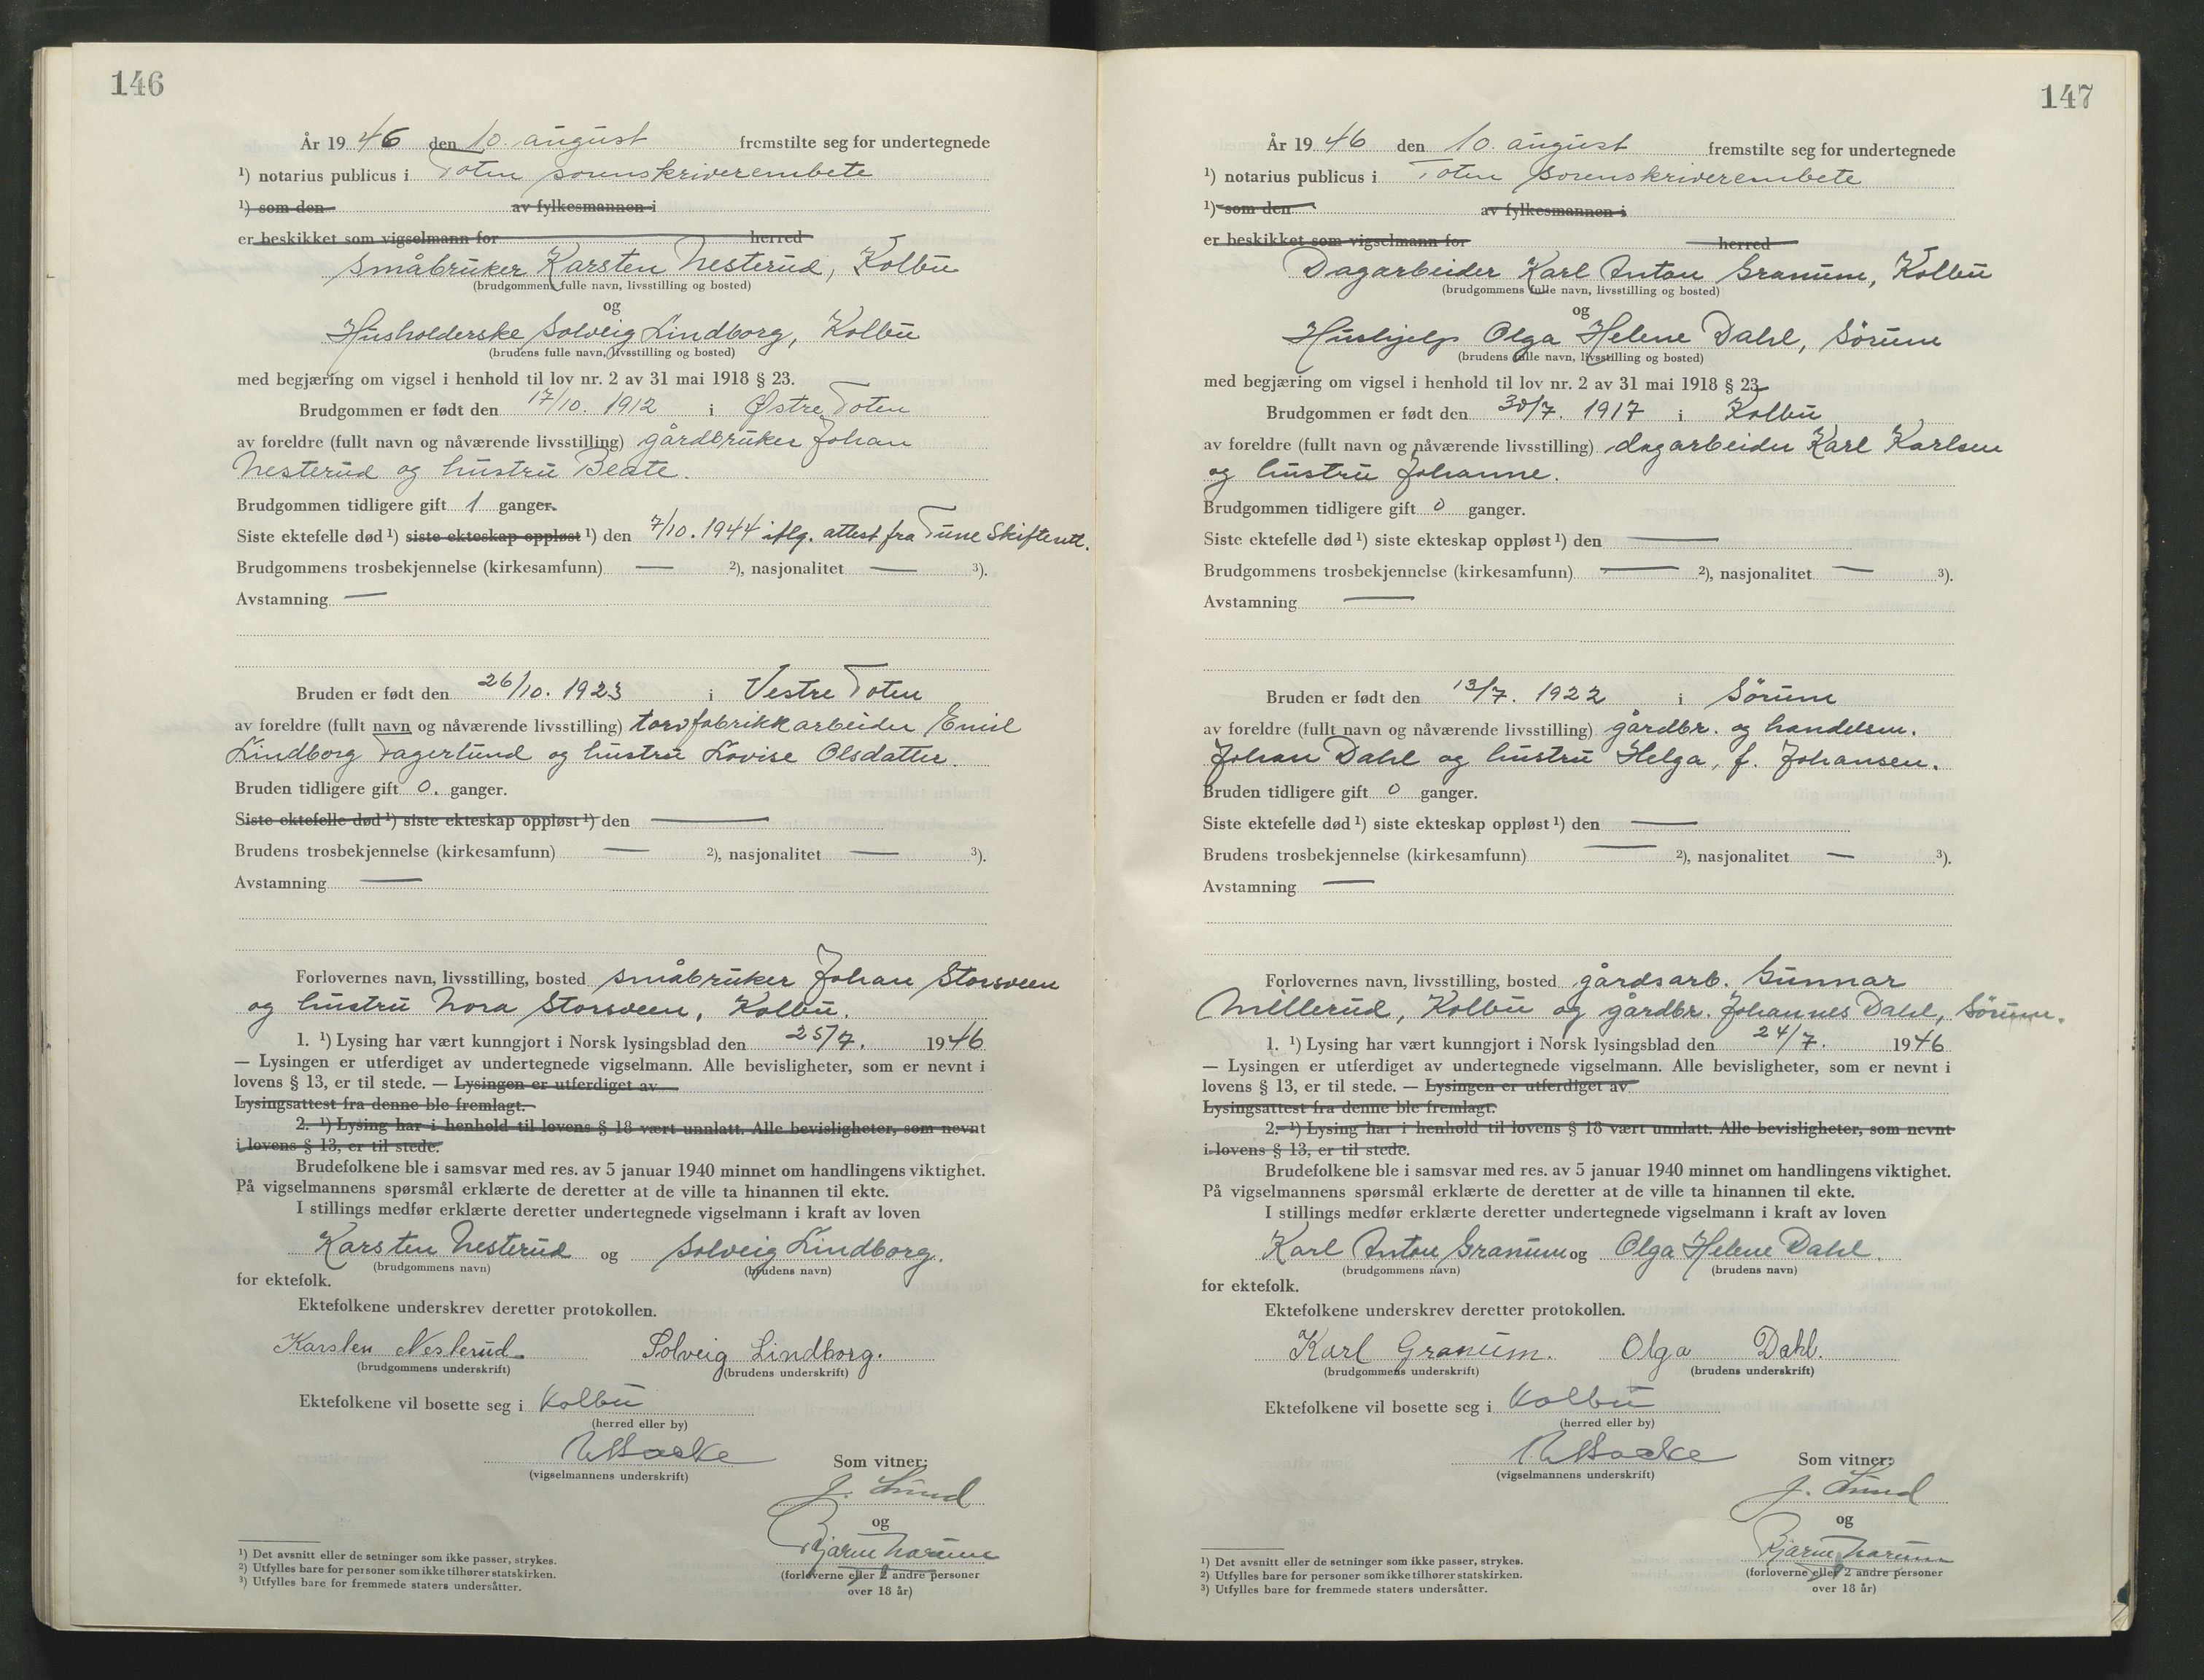 146
År 1946 den 10. august fremstilte seg for undertegnede
¹) notarius publicus i Toten sorenskriverembete
¹) som den av fylkesmannen i
er beskikket som vigselmann for herred
småbruker Karsten Nesterud, Kolbu
(brudgommens fulle navn, livsstilling og bosted)
og
Husholderske Solveig Lindborg, Kolbu
(brudens fulle navn, livsstilling og bosted)
med begjæring om vigsel i henhold til lov nr. 2 av 31 mai 1918 § 23.
Brudgommen er født den 17/10. 1912 i Østre Toten
av foreldre (fullt navn og nåværende livsstilling) gårdbruker Johan
Nesterud og hustru Beate.
Brudgommen tidligere gift 1 ganger.
Siste ektefelle død ¹) siste ekteskap oppløst ¹) den 7/10. 1944 iflg. attest fra Tune Skifterett.
Brudgommens trosbekjennelse (kirkesamfunn) — ²), nasjonalitet — ³).
Avstamning —
Bruden er født den 26/10. 1923 i Vestre Toten
av foreldre (fullt navn og nåværende livsstilling) torvfabrikkarbeider Emil
Lindborg Fagerlund og hustru Lovise Olsdatter.
Bruden tidligere gift 0. ganger.
Siste ektefelle død ¹) siste ekteskap oppløst ¹) den —
Brudens trosbekjennelse (kirkesamfunn) — ²), nasjonalitet — ³).
Avstamning —
Forlovernes navn, livsstilling, bosted småbruker Johan Storsveen
og hustru Nora Storsveen, Kolbu.
1. ¹) Lysing har vært kunngjort i Norsk lysingsblad den 25/7. 1946
— Lysingen er utferdiget av undertegnede vigselmann. Alle bevisligheter, som er nevnt i
lovens § 13, er til stede. — Lysingen er utferdiget av
Lysingsattest fra denne ble fremlagt.
2. ¹) Lysing har i henhold til lovens § 18 vært unnlatt. Alle bevisligheter, som nevnt
i lovens § 13, er til stede.
Brudefolkene ble i samsvar med res. av 5 januar 1940 minnet om handlingens viktighet.
På vigselmannens spørsmål erklærte de deretter at de ville ta hinannen til ekte.
I stillings medfør erklærte deretter undertegnede vigselmann i kraft av loven
Karsten Nesterud og Solveig Lindborg.
(brudgommens navn) (brudens navn)
for ektefolk.
Ektefolkene underskrev deretter protokollen.
Karsten Nesterud. Solveig Lindborg.
(brudgommens underskrift) (brudens underskrift)
Ektefolkene vil bosette seg i Kolbu
(herred eller by)
(vigselmannens underskrift)
Som vitner:
J. Lund
og
Bjarne
(forloverne eller 2 andre personer
over 18 år)
¹) Det avsnitt eller de setninger som ikke passer, strykes.
²) Utfylles bare for personer som ikke tilhører statskirken.
³) Utfylles bare for fremmede staters undersåtter.
147
År 1946 den 10. august fremstilte seg for undertegnede
¹) notarius publicus i Toten sorenskriverembete
¹) som den av fylkesmannen i
er beskikket som vigselmann for herred
Dagarbeider Karl Anton Granum, Kolbu
(brudgommens fulle navn, livsstilling og bosted)
og
Hushjelp Olga Helene Dahl, Sörum
(brudens fulle navn, livsstilling og bosted)
med begjæring om vigsel i henhold til lov nr. 2 av 31 mai 1918 § 23
Brudgommen er født den 30/7. 1917 i Kolbu
av foreldre (fullt navn og nåværende livsstilling) dagarbeider Karl Karlsen
og hustru Johanne.
Brudgommen tidligere gift 0 ganger.
Siste ektefelle død ¹) siste ekteskap oppløst ¹) den —
Brudgommens trosbekjennelse (kirkesamfunn) — ²), nasjonalitet — ³).
Avstamning —
Bruden er født den 13/7. 1922 i Sörum
av foreldre (fullt navn og nåværende livsstilling) gårdbr. og handelsm.
Johan Dahl og hustru Helga, f. Johansen.
Bruden tidligere gift 0 ganger.
Siste ektefelle død ¹) siste ekteskap oppløst ¹) den —
Brudens trosbekjennelse (kirkesamfunn) — ²), nasjonalitet — ³).
Avstamning —
Forlovernes navn, livsstilling, bosted gårdsarb. Gunnar
Millerud, Kolbu og gårdbr. Johannes Dahl, Sörum.
1. ¹) Lysing har vært kunngjort i Norsk lysingsblad den 24/7. 1946
— Lysingen er utferdiget av undertegnede vigselmann. Alle bevisligheter, som er nevnt i
lovens § 13, er til stede. — Lysingen er utferdiget av
Lysingsattest fra denne ble fremlagt.
2. ¹) Lysing har i henhold til lovens § 18 vært unnlatt. Alle bevisligheter, som nevnt
i lovens § 13, er til stede.
Brudefolkene ble i samsvar med res. av 5 januar 1940 minnet om handlingens viktighet.
På vigselmannens spørsmål erklærte de deretter at de ville ta hinannen til ekte.
I stillings medfør erklærte deretter undertegnede vigselmann i kraft av loven
Karl Anton Granum og Olga Helene Dahl.
(brudgommens navn) (brudens navn)
for ektefolk.
Ektefolkene underskrev deretter protokollen.
Karl Granum. Olga Dahl.
(brudgommens underskrift) (brudens underskrift)
Ektefolkene vil bosette seg i Kolbu
(herred eller by)
(vigselmannens underskrift)
Som vitner:
J. Lund
og
Bjarne
(forloverne eller 2 andre personer
over 18 år)
¹) Det avsnitt eller de setninger som ikke passer, strykes.
²) Utfylles bare for personer som ikke tilhører statskirken.
³) Utfylles bare for fremmede staters undersåtter.